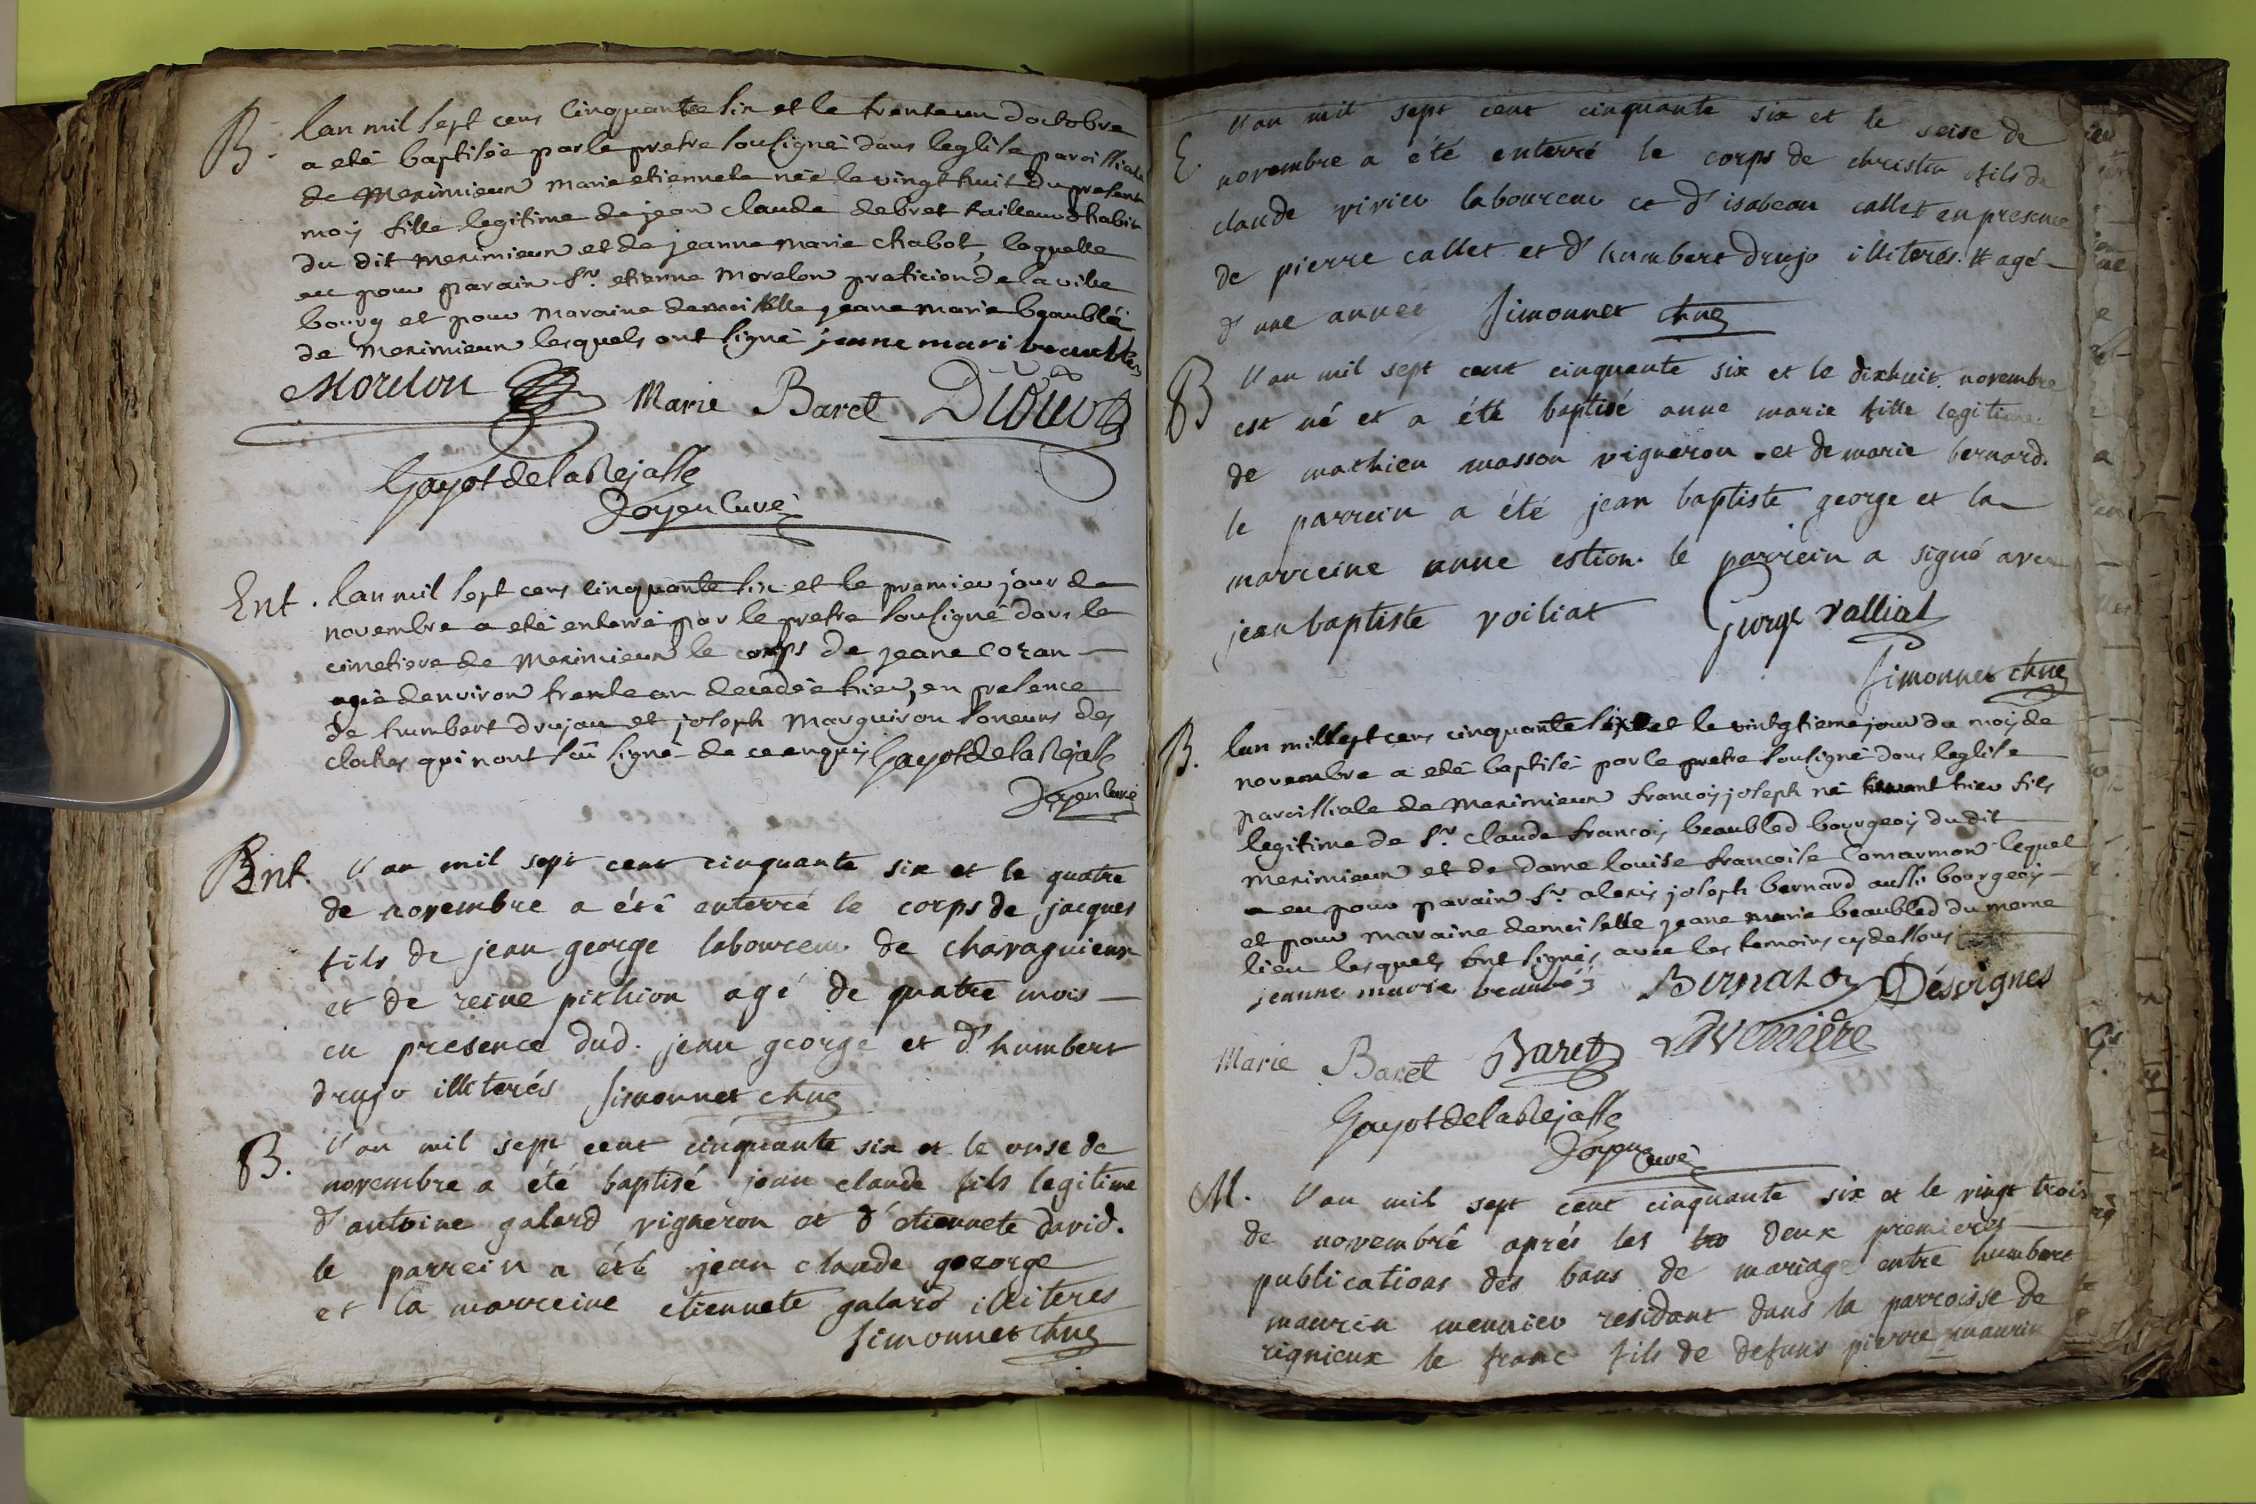 B. lan mil sept cens cinquante six et le trenteun doctobre
a eté baptisée par le pretre sousigné dans leglise paroissiale
de Meximieux marie etiennete née le vingt huit du present
moij fille legitime de jean claude debret tailleur dhabit
du dit Meximieux et de jeanne marie chabot, laquelle
eu pour parain Sr. etienne Morelon praticien de la ville
bourg et pour maraine demoiselle jeane marie beaublé
de Meximieux lesquels ont signé jeanne mari beaublez
Morelon Marie Baret
Gayot de la Rejasse
Doyen Curé
Ent. lan mil sept cens cinquante six et le premier jour de
novembre a eté enterré par le pretre sousigné dans le
cimetiere de Meximieux le corps de jeane cozan
agée denviron trente an decedée hier, en presence
de humbert drujau et joseph Marguiron soneurs des
cloches qui nont sçu signé de ce enquis Gayot de la Rejasse
Doyen Curé
Ent. l'an mil sept cent cinquante six et le quatre
de novembre a été enterré le corps de jacques
fils de jean george laboureur de charagnieux
et de reine pithion agé de quatre mois
en presence dud. jean george et d'humbert
drujo illiterés Simonnet chne
B. l'an mil sept cent cinquante six et le onse de
novembre a été baptisé jean claude fils legitime
d'antoine galard vigneron et d'etiennete david.
le parrein a été jean claude george
et la marreine etiennete galard illiteres
Simonnet chne
E. l'an mil sept cent cinquante six et le seise de
novembre a été enterré le corps de christin fils de
claude vivier laboureur et d'isabeau callet en presence
de pierre callet et d'humbert drujo illiterés. # agé
d'une année Simonnet chne
B l'an mil sept cent cinquante six et le dixhuit novembre
est né et a été baptisé anne marie fille legitime
de mathieu masson vigneron et de marie bernard.
le parrein a été jean baptiste george et la
marreine anne estion. le parrein a signé avec
jean baptiste voiliat George valliat
Simonnet chne
B. lan mil sept cens cinquante six et le vintgtieme jour du moij de
novembre a eté baptisé par le pretre sousigné dans leglise
paroissiale de Meximieux francoij joseph né hier fils
legitime de Sr. claude francoij beaubled bourgeoij du dit
Meximieux et de dame louise francoise Comarmon lequel
a eu pour parain Sr. alexis joseph bernard aussi bourgeoij
et pour maraine demoiselle jeane marie beaubled du meme
lieu lesquels ont signés avec les temoins cy dessous
jeanne marie beaubléz Bernard Désvignes
Marie Baret Baret
Gayot de la Rejasse
Doyen Curé
M. l'an mil sept cent cinquante six et le vingt trois
de novembre aprés les deux premieres
publications des bans de mariage entre humbert
maurin meunier residant dans la parroisse de
rignieux le franc fils de defuns pierre maurin